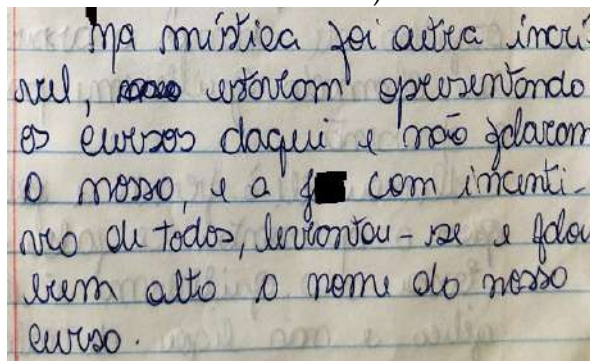 Na mística foi outra incrí-
vel, estavam apresentando
os cursos daqui e não falaram
o nosso, e a f com incenti-
vo de todos, levantou-se e falou
bem alto o nome do nosso
curso.